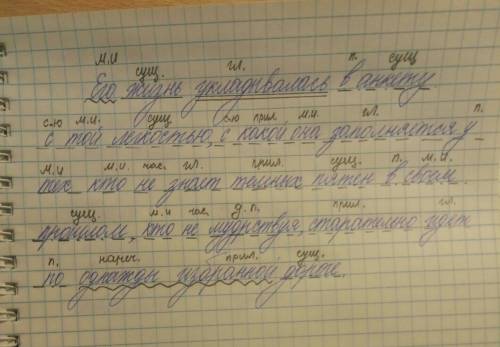 м.и сущ. гл. п. сущ
Его жизнь укладывалась в анкету
с.ю м.и. сущ с.ю прил. м.и. гл. п.
с той легкостью, с какой она заполняется у
м.и м.и. час. гл. прил. сущ. п. м.и.
тех кто не знает темных пятен в своем
сущ. м.и час. д.п. прил. гл.
прошлом, кто не мудрствуя, старательно идет
п. нареч. прил. сущ.
по однажды избранной дороге.